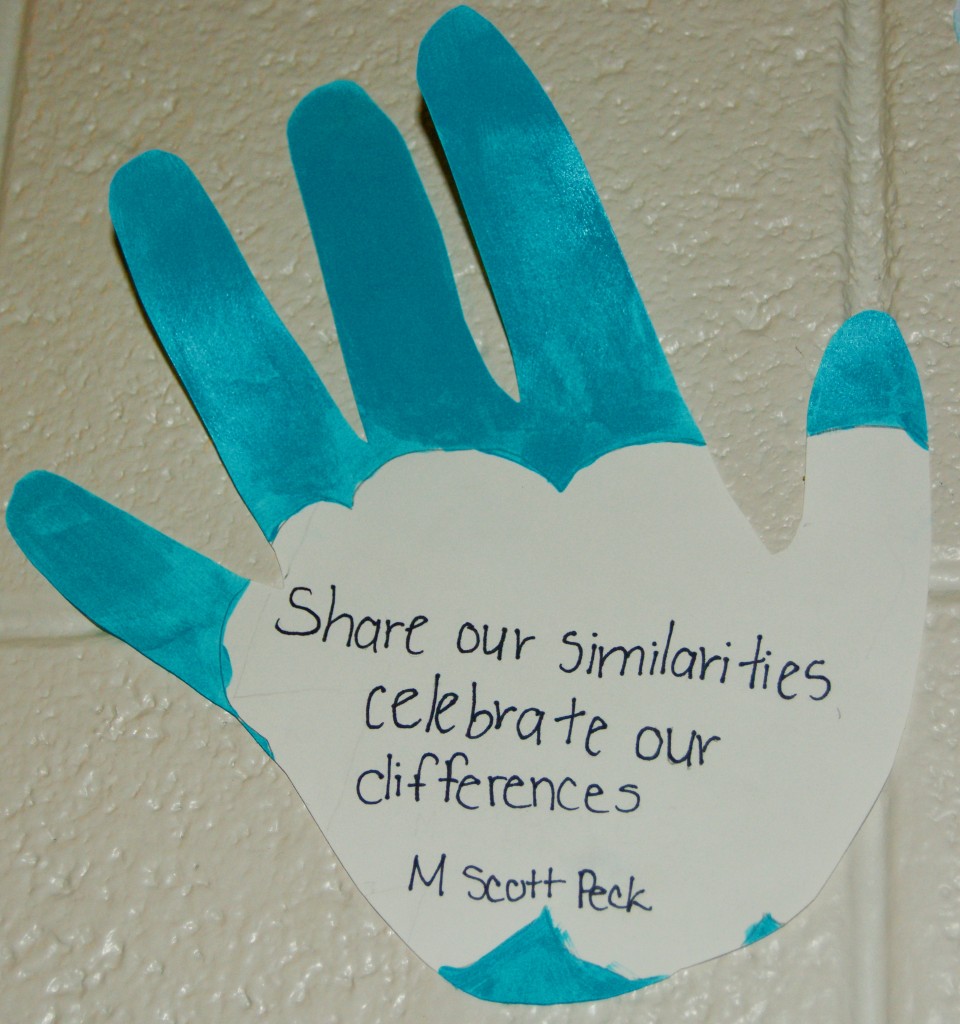 Share our similarities
celebrate our
differences
M Scott Peck